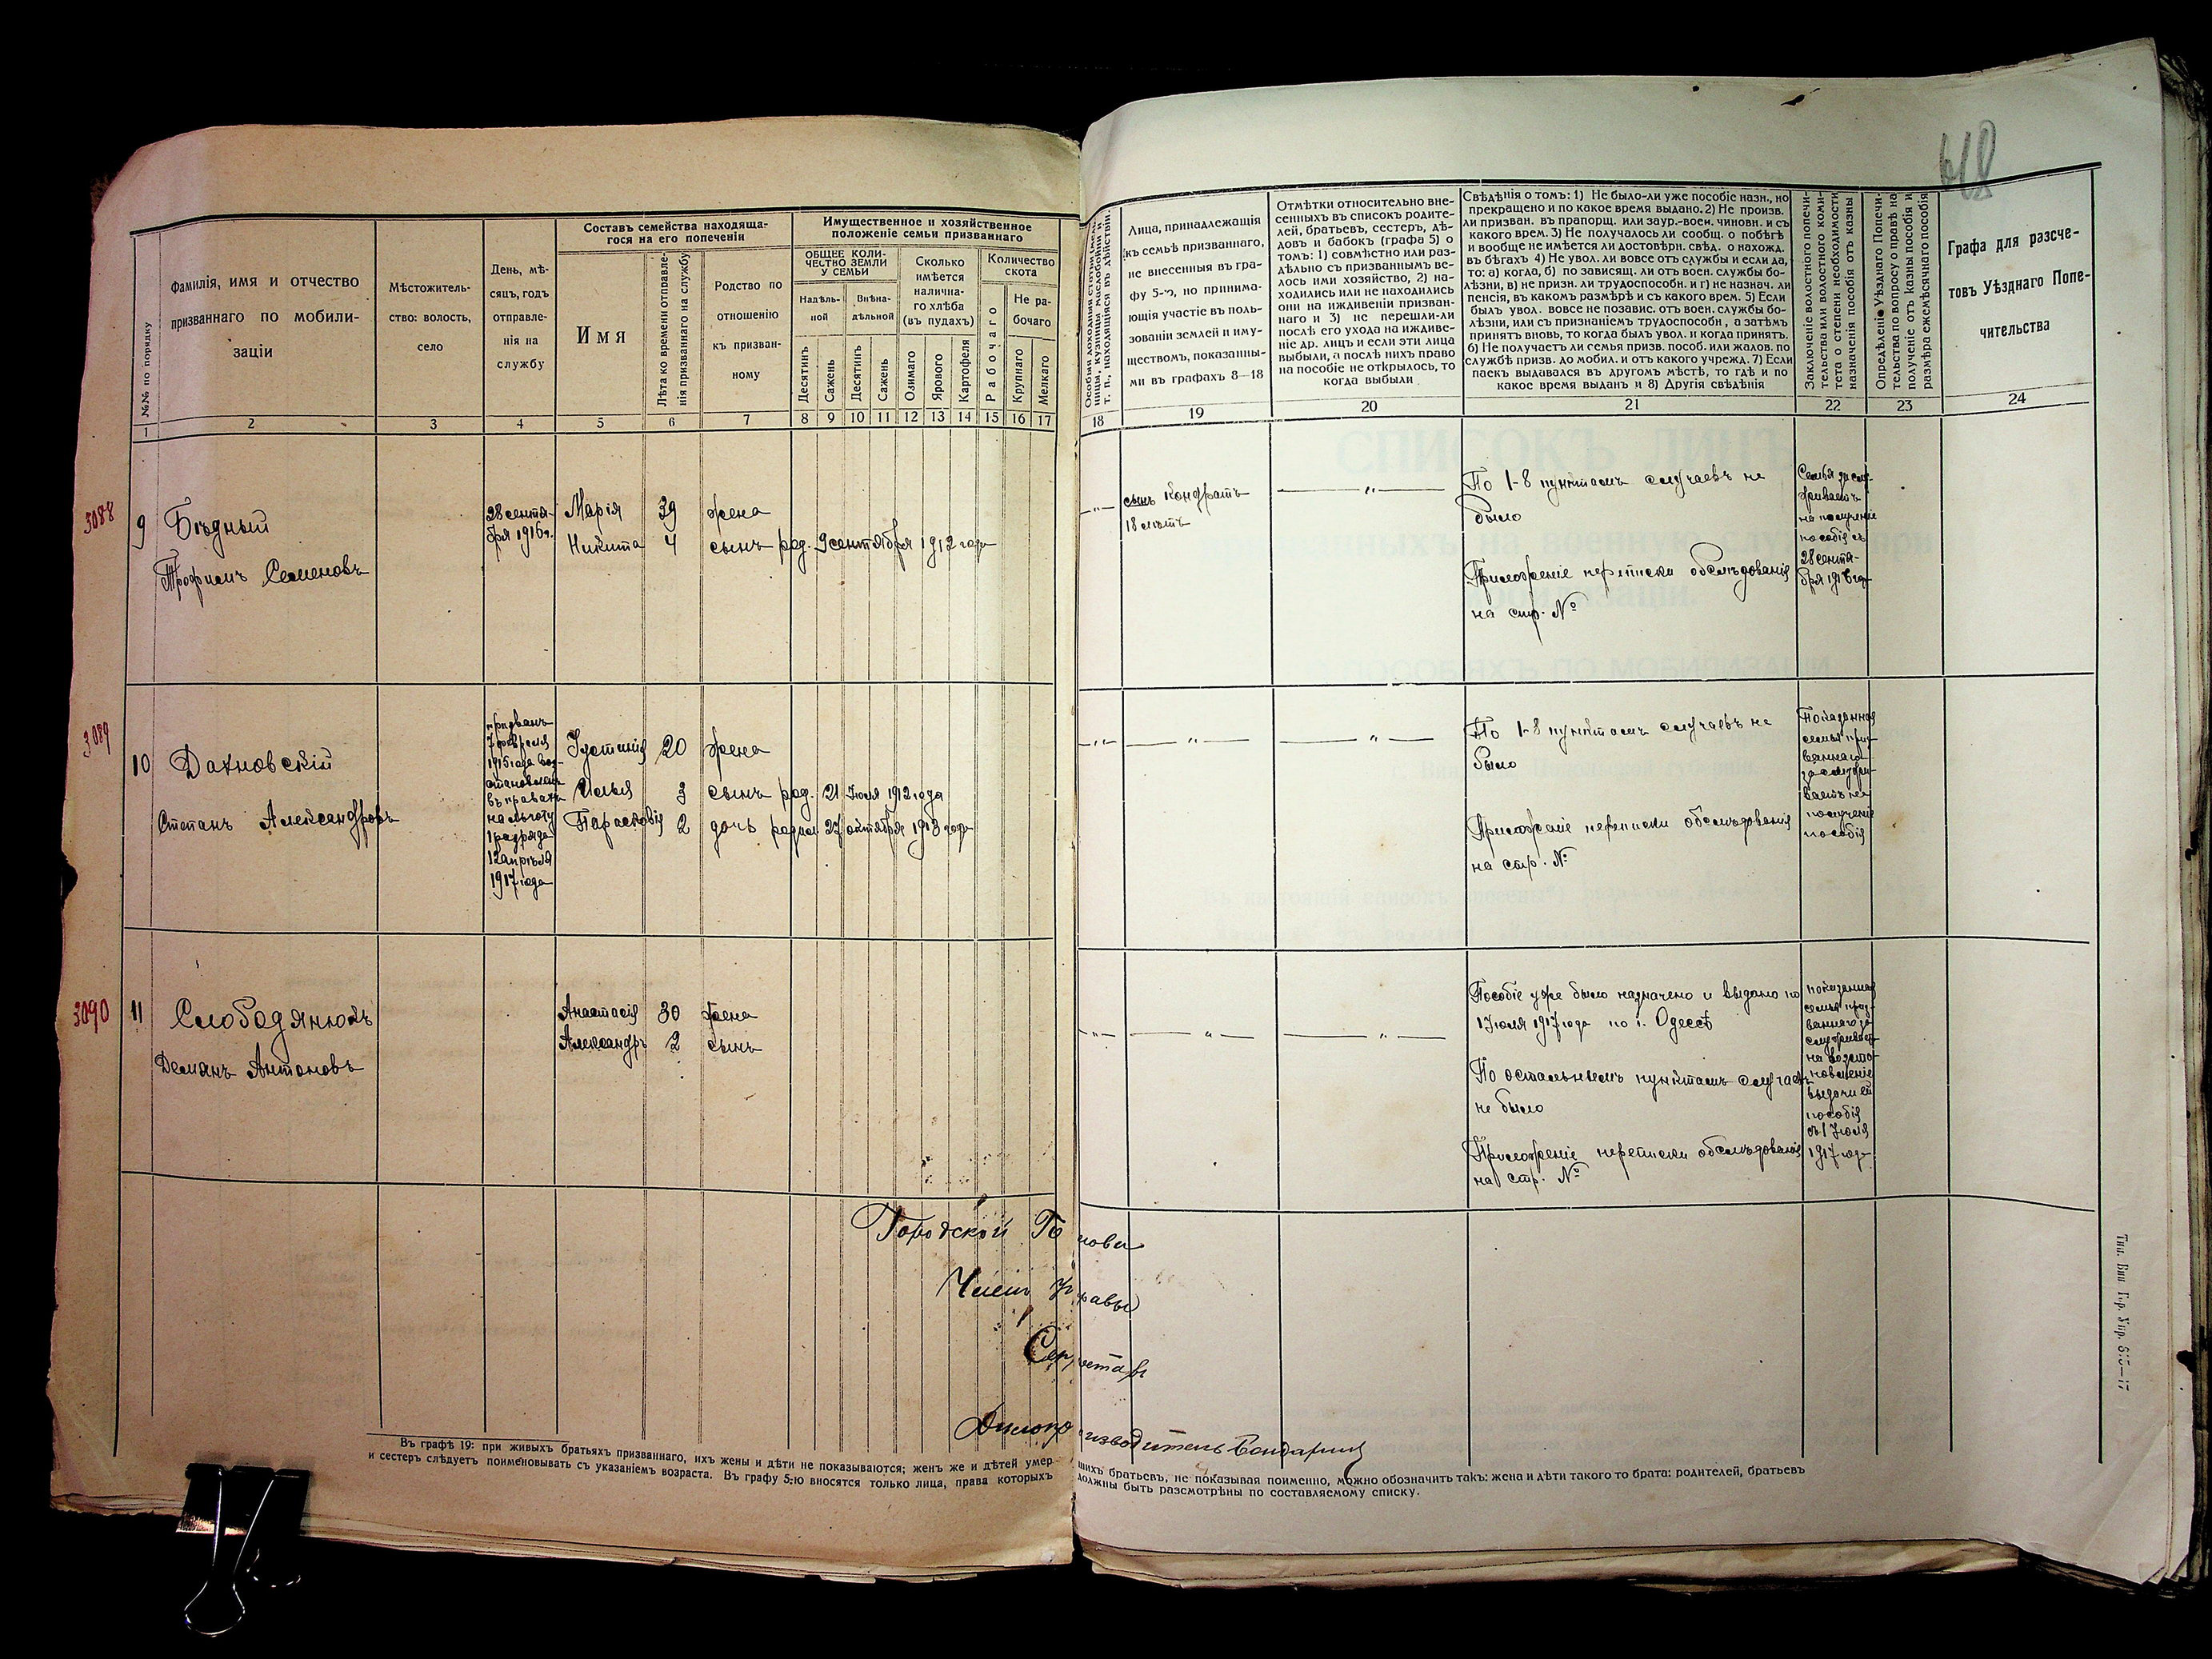 Фамилія, имя и отчество
призваннаго по мобили-
заціи
№№ по порядку
Мѣстожитель-
ство: волость,
село
День, мѣ-
сяцъ, годъ
отправле-
нія на
службу
Составъ семейства находяща-
гося на его попеченіи
Имя
Лѣта ко времени отправле-
нія призваннаго на службу
Родство по
отношенію
къ призван-
ному
Имущественное и хозяйственное
положеніе семьи призваннаго
ОБЩЕЕ КОЛИ-
ЧЕСТВО ЗЕМЛИ
У СЕМЬИ
Надѣль-
ной
Внѣна-
дѣльной
Десятинъ
Сажень
Десятинъ
Сажень
Сколько
имѣется
налична-
го хлѣба
(въ пудахъ)
Озимаго
Ярового
Картофеля
Количество
скота
Рабочаго
Не ра-
бочаго
Крупнаго
Мелкаго
1 2 3 4 5 6 7 8 9 10 11 12 13 14 15 16 17
3088
9
Бѣдный
Трофимъ Семеновъ
28 сентя-
бря 1916 г.
Марія 39 жена
Никита 4 сынъ род. 9 сентября 1912 года
3089
10
Дахновскій
Степанъ Александровъ
призванъ
7 февраля
1915 года воз-
становленъ
въ правахъ
на льготу
1 разряда
12 апрѣля
1917 года
Іустинія 20 жена
Илья 3 сынъ род. 21 Іюля 1912 года
Парасковія 2 дочь родил 27 октября 1913 года
3090
11
Слободянюкъ
Демянъ Антоновъ
Анастасія 30 жена
Александръ 2 сынъ
Городской Голова
Членъ Управы
Секретарь
Дѣлопроизводитель
Въ графѣ 19: при живыхъ братьяхъ призваннаго, ихъ жены и дѣти не показываются; женъ же и дѣтей умер-
и сестеръ слѣдуетъ поименовывать съ указаніемъ возраста. Въ графу 5-ю вносятся только лица, права которыхъ
Лица, принадлежащія
къ семьѣ призваннаго,
не внесенныя въ гра-
фу 5-ю, но принима-
ющія участіе въ поль-
зованіи землей и иму-
ществомъ, показанны-
ми въ графахъ 8—18
Отмѣтки относительно вне-
сенныхъ въ список родите-
лей, братьевъ, сестеръ, дѣ-
довъ и бабокъ (графа 5) о
томъ: 1) совмѣстно или раз-
дѣльно съ призваннымъ ве-
лось ими хозяйство, 2) на-
ходились или не находились
они на иждивеніи призван-
наго и 3) не перешли-ли
послѣ его ухода на иждиве-
ніе др. лицъ и если эти лица
выбыли, а послѣ нихъ право
на пособіе не открылось, то
когда выбыли
Свѣдѣнія о томъ: 1) Не было-ли уже пособіе назн., но
прекращено и по какое время выдано. 2) Не произв.
ли призван. въ прапорщ. или заур.-воен. чиновн. и съ
какого врем. 3) Не получалось ли сообщ. о побѣгѣ
и вообще не имѣется ли достовѣрн. свѣд. о нахожд.
въ бѣгахъ 4) Не увол. ли вовсе отъ службы и если да,
то: а) когда, б) по зависящ. ли отъ воен. службы бо-
лѣзни, в) не призн. ли трудоспособн. и г) не назнач. ли
пенсія, въ какомъ размѣрѣ и съ какого врем. 5) Если
былъ увол. вовсе не позавис. отъ воен. службы бо-
лѣзни, или съ признаніемъ трудоспособн, а затѣмъ
принятъ вновь, то когда былъ увол. и когда принятъ.
6) Не получаетъ ли семья призв. пособ. или жалов. по
службѣ призв. до мобил. и отъ какого учрежд. 7) Если
паекъ выдавался въ другомъ мѣстѣ, то гдѣ и по
какое время выданъ и 8) Другія свѣдѣнія
Заключеніе волостного попечи-
тельства или волостного коми-
тета о степени необходимости
назначенія пособія отъ казны
Опредѣленіе Уѣзднаго Попечи-
тельства по вопросу о правѣ на
полученіе отъ казны пособія и
размѣра ежемѣсячнаго пособія
Графа для разсче-
товъ Уѣзднаго Попе-
чительства
18 19 20 21 22 23 24
сынъ Кондратъ
18 лѣтъ
По 1-8 пунктамъ случаевъ не
было
Приложеніе переписки обслѣдованія
на стр. №
Семья заслу-
живаетъ
на полученіе
пособія съ
28 сентя-
бря 1916 год
По 1-8 пунктамъ случаевъ не
было
Приложеніе переписки обслѣдованія
на стр. №
Показанная
семья приз-
ваннаго
заслужи-
ваетъ на
полученіе
пособія
Пособіе уже было назначено и выдано по
1 Іюля 1917 года по г. Одессѣ
По остальнымъ пунктамъ случаевъ
не было
Приложеніе переписки обслѣдованія
на стр. №
показанная
семья приз-
ваннаго за
служиваетъ
на возста-
новленіе
выдачи ей
пособія
съ 1 Іюля
1917 года
шихъ братьевъ, не показывая поименно, можно обозначить такъ: жена и дѣти такого то брата: родителей, братьевъ
должны быть разсмотрѣны по составляемому списку.
Тип. Вин. Гор. Упр. 615—17